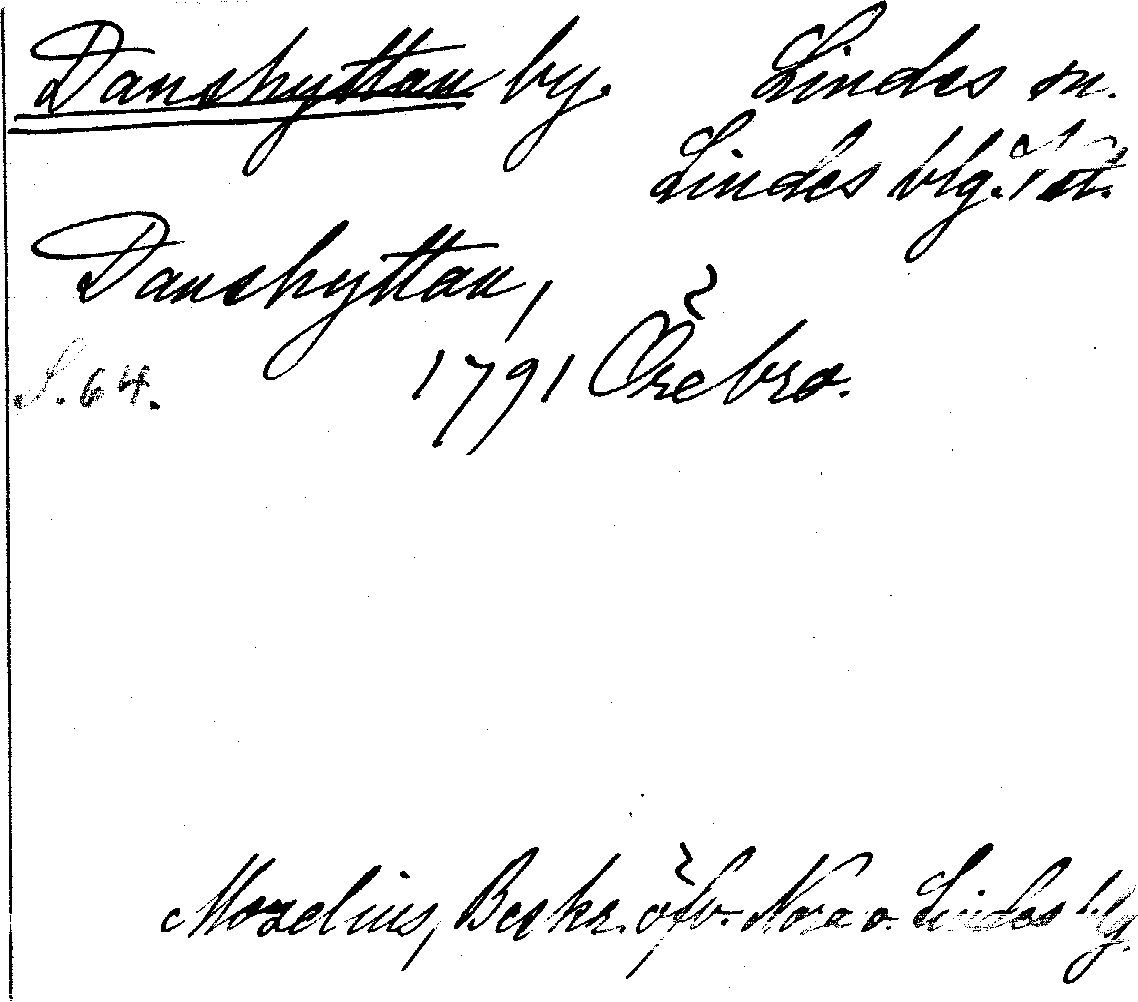 Danshyttan by. Lindes sn.
Lindes blg.
Danshyttan,
S. 64. 1791 Örebro.
Morelius, Beskr. öfv. Nora o. Lindes blg.